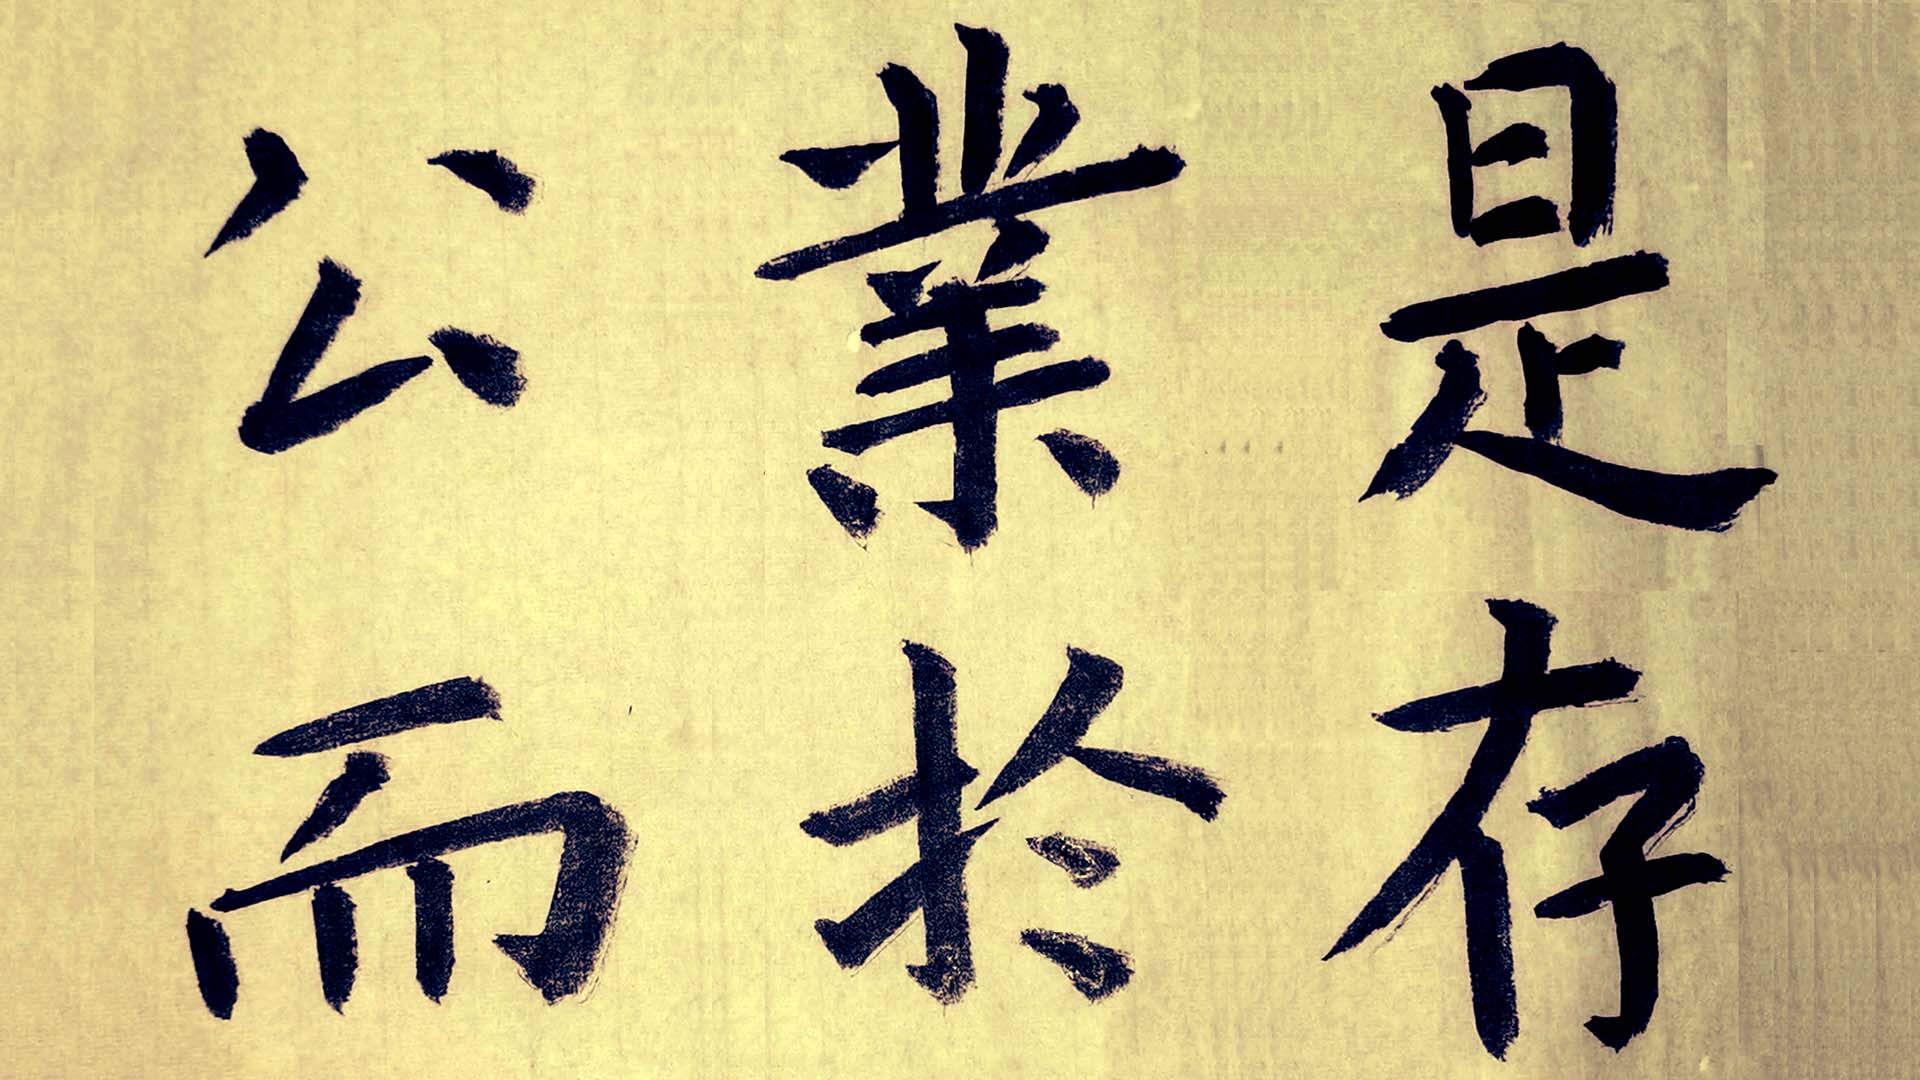 是存
業於
公而